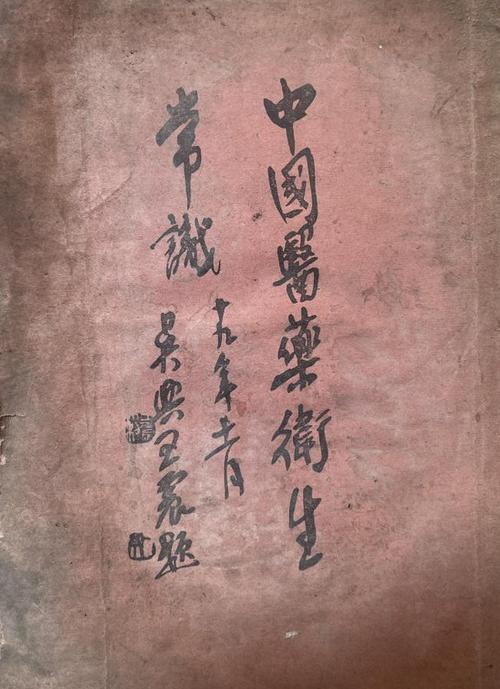 中國醫藥衛生
常識
十九年十一月
吳興王震題